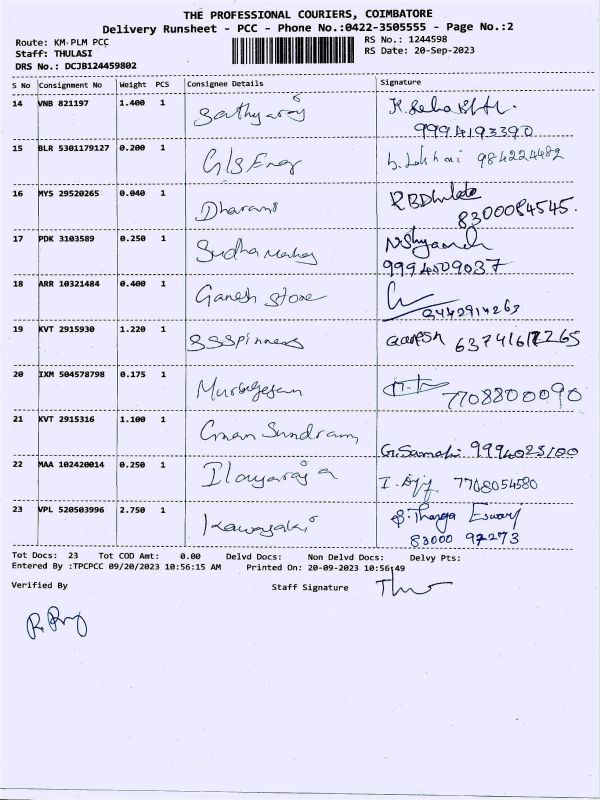 THE PROFESSIONAL COURIERS, COIMBATORE
Delivery Runsheet - PCC - Phone No.:0422-3505555 - Page No.:2
Route: KM-PLM PCC
RS No.: 1244598
Staff: THULASI
RS Date: 20-Sep-2023
DRS No.: DCJB124459802
S No Consignment No Weight PCS Consignee Details Signature
14 VNB 821197 1.400 1 Sathyaraj
9994193390
15 BLR 5301179127 0.200 1 GLS Engg 984224482
16 MYS 29520265 0.040 1 Dharani
8300084545.
17 PDK 3103589 0.250 1 Sudha
9994009037
18 ARR 10321484 0.400 1 Ganesh Store
9442914263
19 KVT 2915930 1.220 1 SSSpinners Ganesh
20 IXM 504578798 0.175 1 Murugesan 7708800090
21 KVT 2915316 1.100 1 Sundram
22 MAA 102420014 0.250 1 Ilayaraja 7708054580
23 VPL 520503996 2.750 1 Kawasaki S. Thanga Eswari
83000 97273
Tot Docs: 23 Tot COD Amt: 0.00 Delvd Docs: Non Delvd Docs: Delvy Pts:
Entered By :TPCPCC 09/20/2023 10:56:15 AM Printed On: 20-09-2023 10:56:49
Verified By Staff Signature